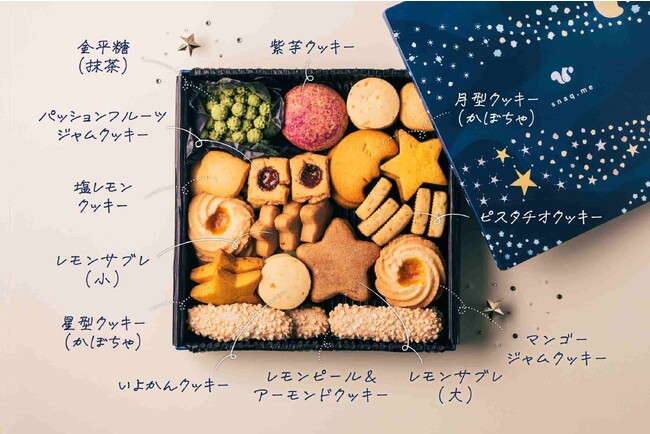 金平糖
(抹茶)
紫芋クッキー
パッションフルーツ
ジャムクッキー
月型クッキー
(かぼちゃ)
snaq.me
塩レモン
クッキー
ピスタチオクッキー
レモンサブレ
(小)
星型クッキー
(かぼちゃ)
マンゴー
ジャムクッキー
いよかんクッキー
レモンピール&
アーモンドクッキー
レモンサブレ
(大)